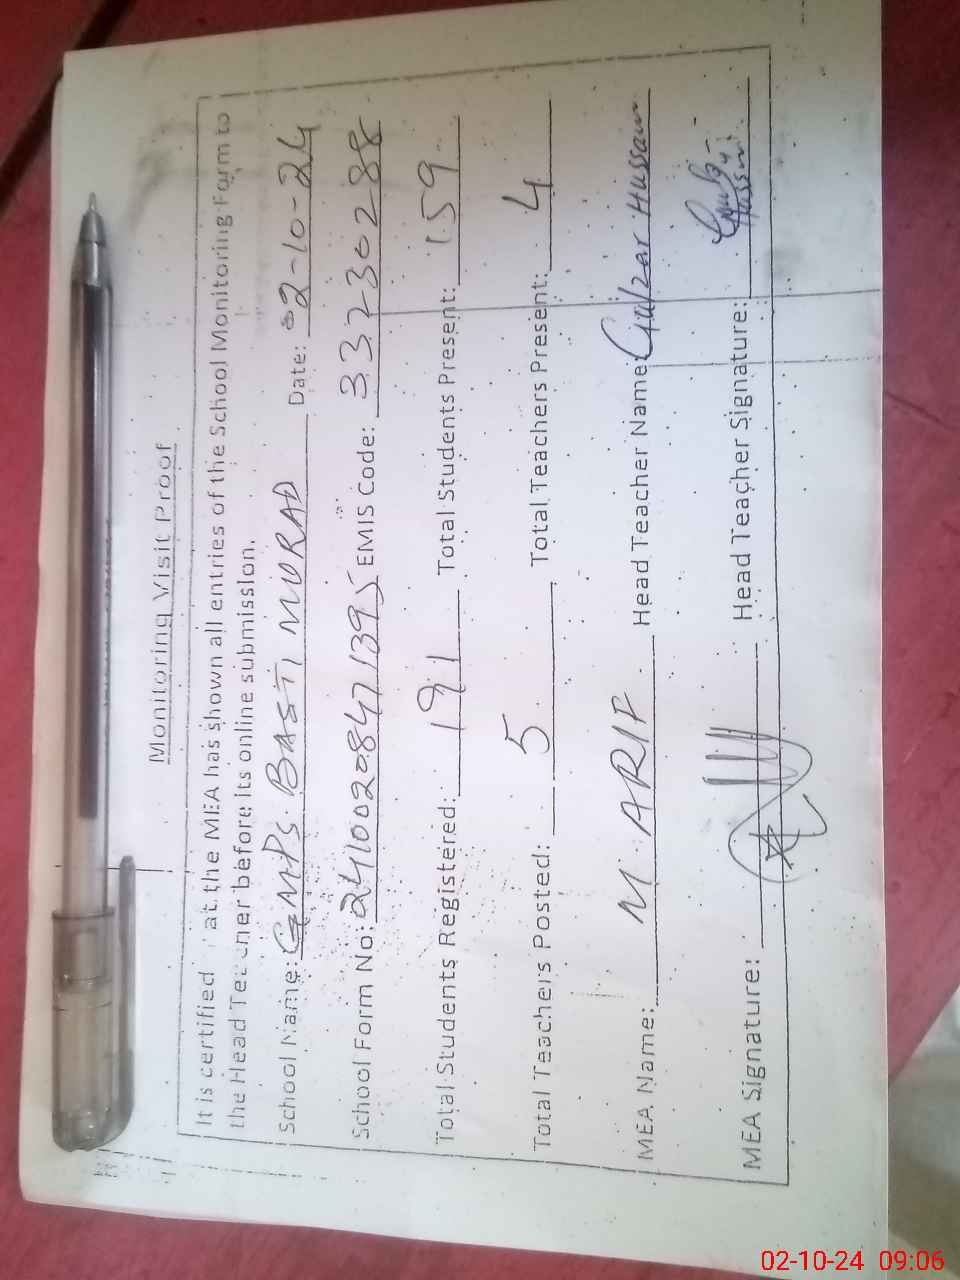 Monitoring Visit Proof
It is certified at the MEA has shown all entries of the School Monitoring Form to
the Head Teacher before its online submission.
School Name: GMPS. BASTI MURAD Date: 02-10-24
School Form No: 24100208471395 EMIS Code: 33230288
Total Students Registered: 191 Total Students Present: 159
Total Teachers Posted: 5 Total Teachers Present: 4
MEA Name: M ARIF Head Teacher Name: Gulzar Hussain
MEA Signature: Head Teacher Signature: Hussain
02-10-24 09:06